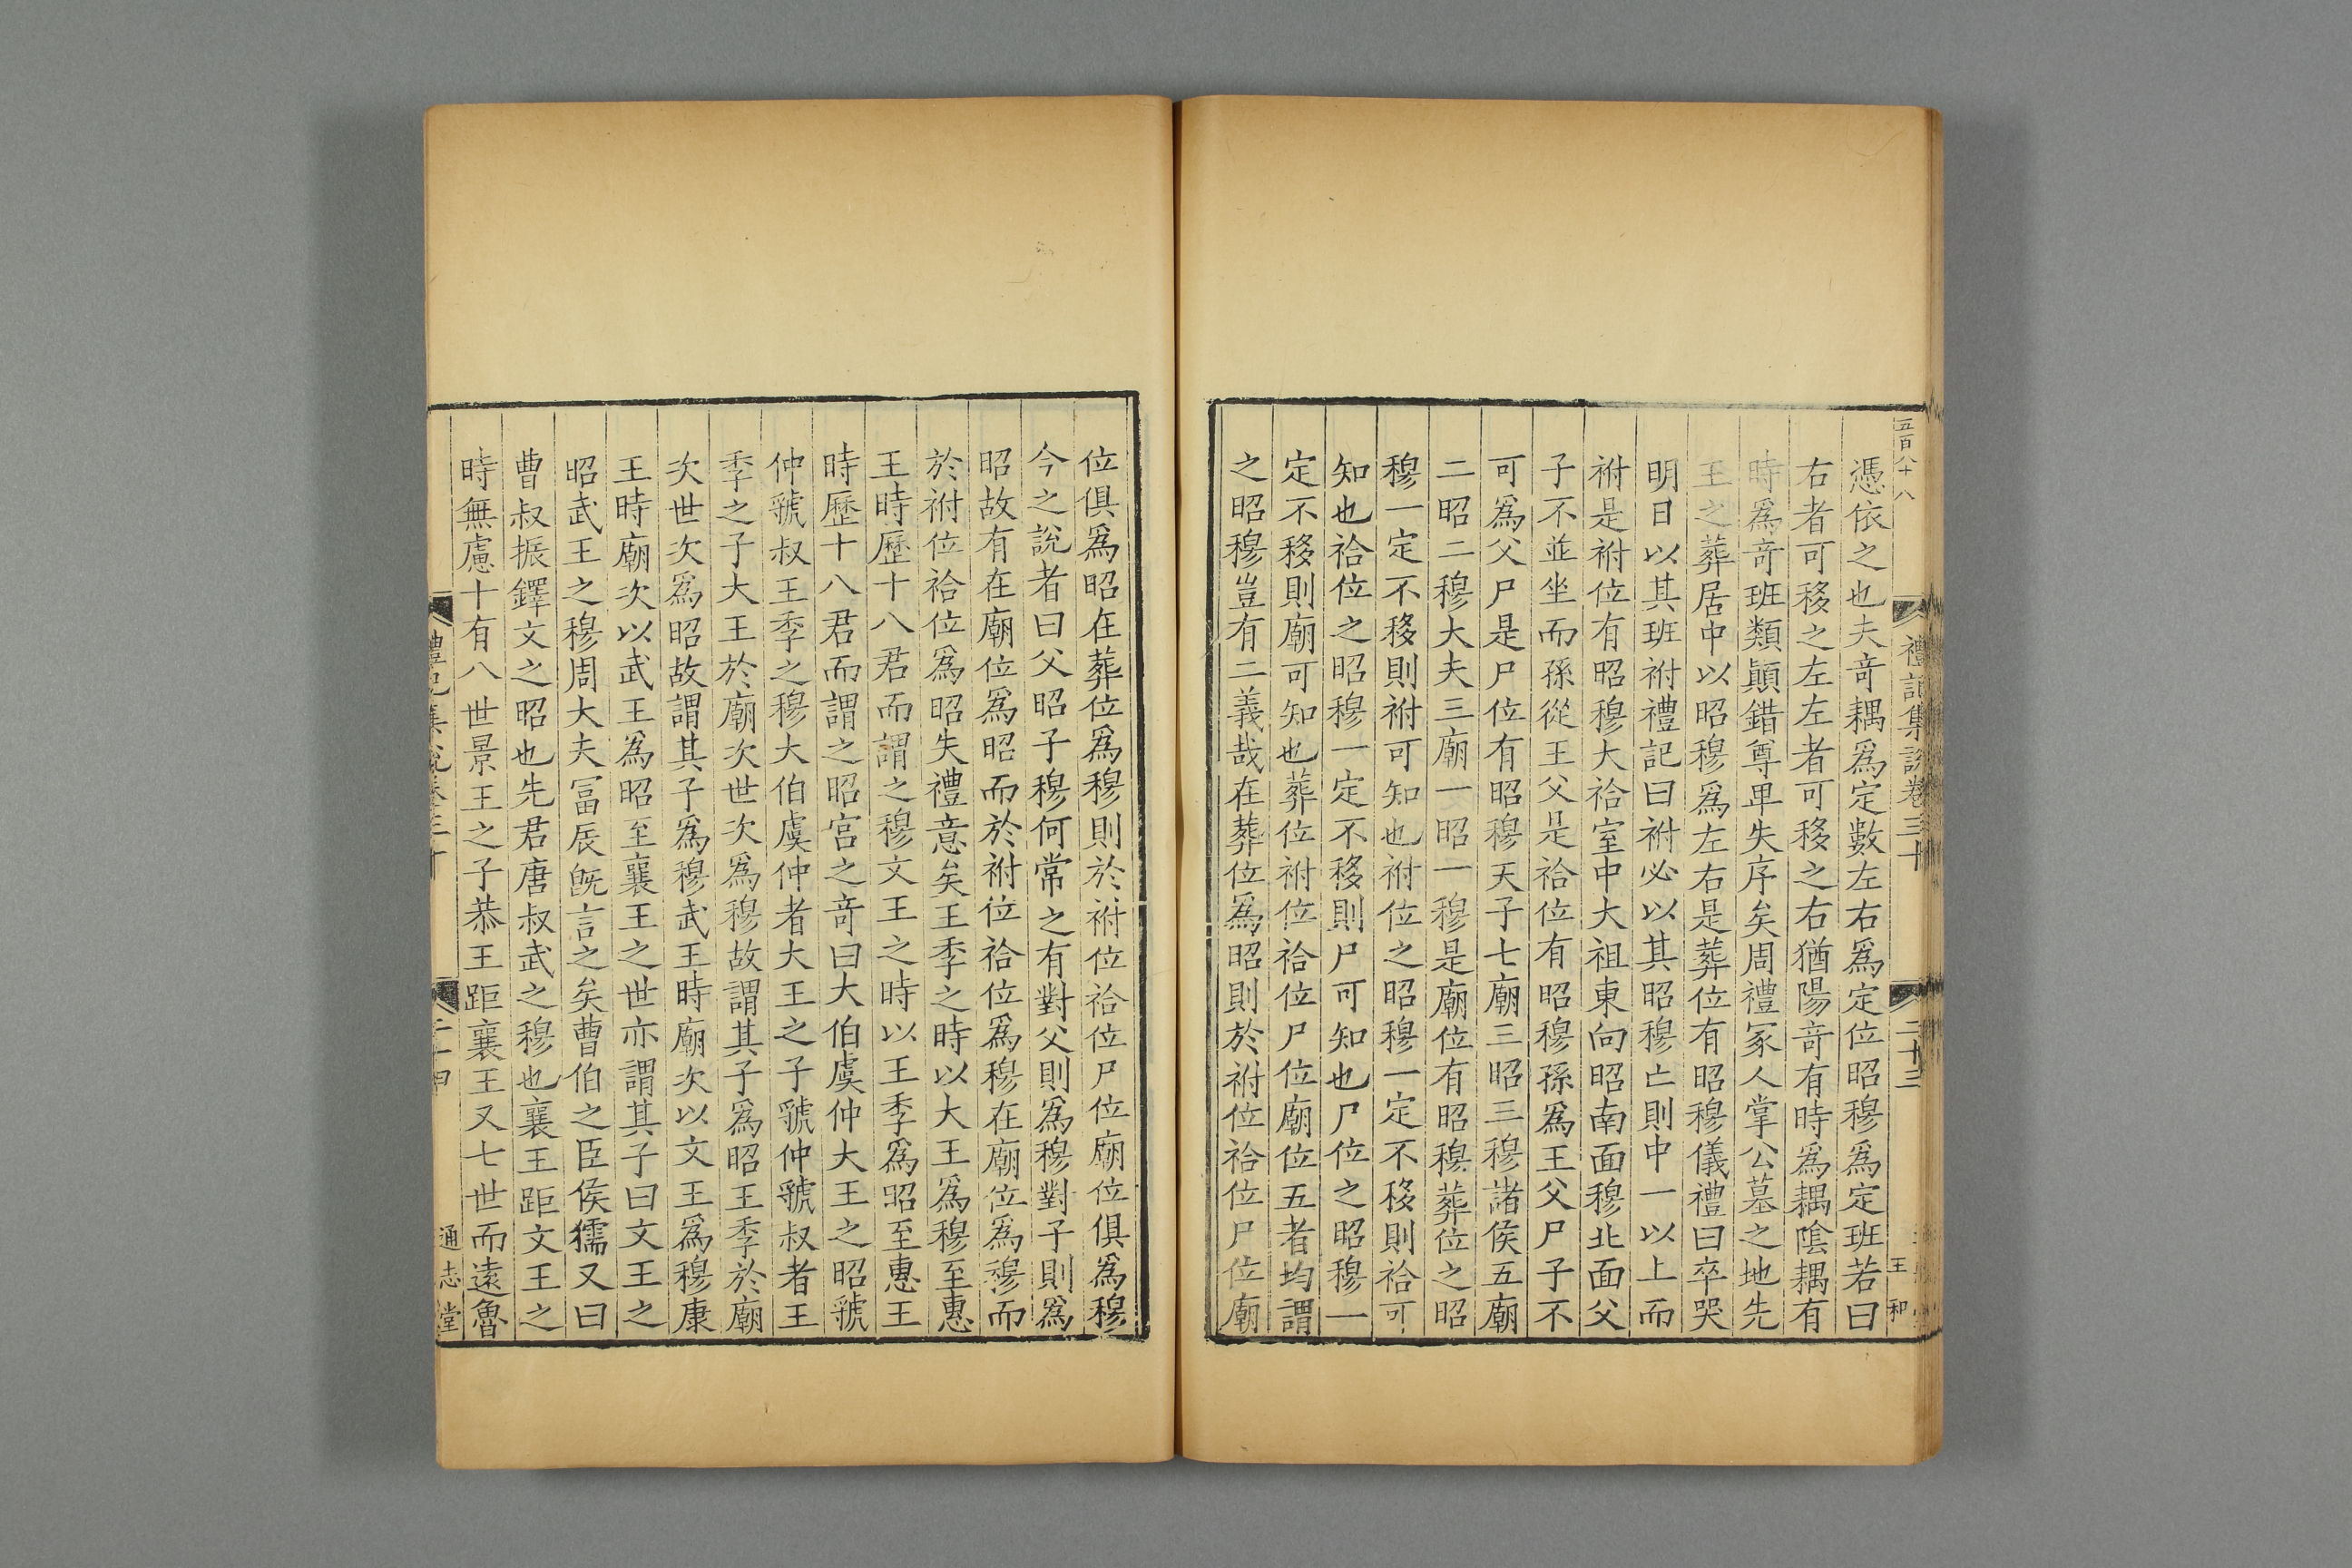 五百八十八
禮記集說卷三十
二十三
王和
憑依之也夫竒耦爲定數左右爲定位昭穆爲定班若曰
右者可移之左左者可移之右猶陽竒有時爲耦陰耦有
時爲竒班類顚錯尊卑失序矣周禮冢人掌公墓之地先
王之葬居中以昭穆爲左右是葬位有昭穆儀禮曰卒哭
明日以其班祔禮記曰祔必以其昭穆亡則中一以上而
祔是祔位有昭穆大祫室中大祖東向昭南面穆北面父
子不並坐而孫從王父是祫位有昭穆孫爲王父尸子不
可爲父尸是尸位有昭穆天子七廟三昭三穆諸侯五廟
二昭二穆大夫三廟一昭一穆是廟位有昭穆葬位之昭
穆一定不移則祔可知也祔位之昭穆一定不移則祫可
知也祫位之昭穆一定不移則尸可知也尸位之昭穆一
定不移則廟可知也葬位祔位祫位尸位廟位五者均謂
之昭穆豈有二義哉在葬位爲昭則於祔位祫位尸位廟
位俱爲昭在葬位爲穆則於祔位祫位尸位廟位俱爲穆
今之說者曰父昭子穆何常之有對父則爲穆對子則爲
昭故有在廟位爲昭而於祔位祫位爲穆在廟位爲穆而
於祔位祫位爲昭失禮意矣王季之時以大王爲穆至惠
王時歷十八君而謂之穆文王之時以王季爲昭至惠王
時歷十八君而謂之昭宮之竒曰大伯虞仲大王之昭虢
仲虢叔王季之穆大伯虞仲者大王之子虢仲虢叔者王
季之子大王於廟次世次爲穆故謂其子爲昭王季於廟
次世次爲昭故謂其子爲穆武王時廟次以文王爲穆康
王時廟次以武王爲昭至襄王之世亦謂其子曰文王之
昭武王之穆周大夫冨辰旣言之矣曹伯之臣侯獳又曰
曹叔振鐸文之昭也先君唐叔武之穆也襄王距文王之
時無慮十有八世景王之子恭王距襄王又七世而遠魯
禮記集說卷三十
二十四
通志堂